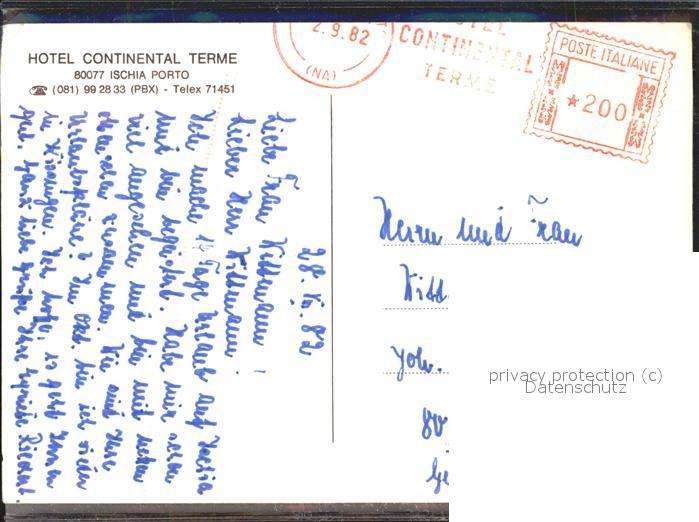 HOTEL CONTINENTAL TERME
80077 ISCHIA PORTO
☎ (081) 99 28 33 (PBX) - Telex 71451
2.9.82
(NA)
HOTEL
CONTINENTAL
TERME
POSTE ITALIANE
*200
28. 82
Liebe Frau Kittmann!
Lieber Herr Kittmann!
Ich mache 14 Tage Urlaub auf Ischia
und bin begeistert. Habe mir schon
viel angesehen und bin mit netten
zusammen. Wie sind Ihre
Urlaubspläne? Im Okt. bin ich wieder
in Kissingen. Ich hoffe, es geht Ihnen
gut. Ganz liebe Grüße Ihre
Herrn und Frau
Kitt
Joh.
80
Ge
privacy protection (c)
Datenschutz